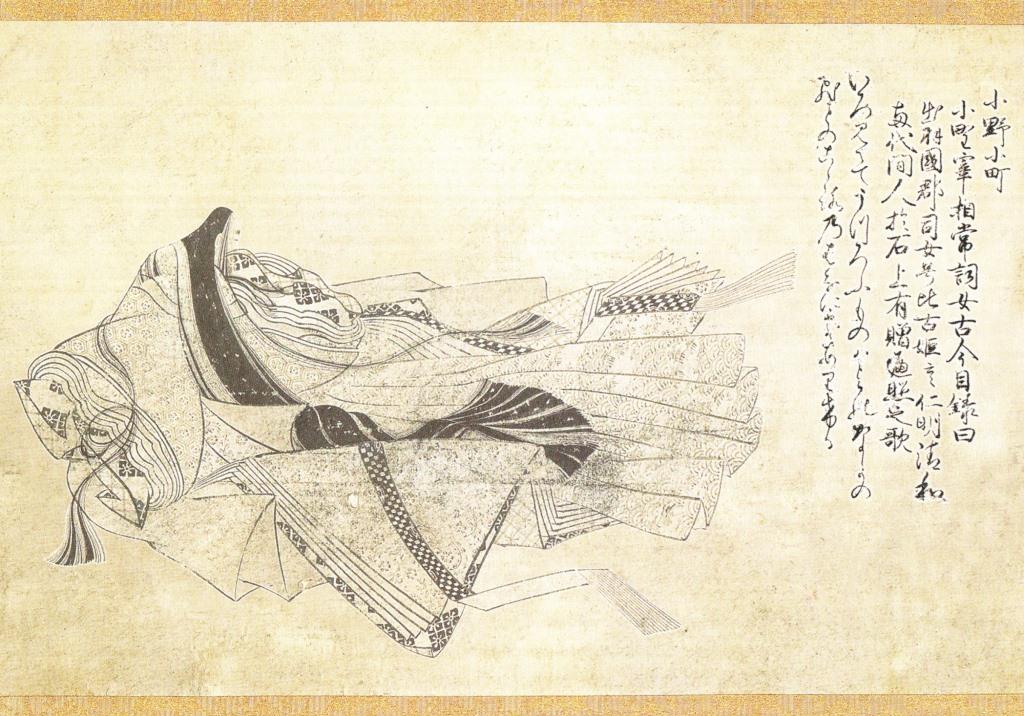 小野小町
小野宰相常詞女古今目録曰
出羽國郡司女号比古姫云仁明清和
両代間人於石上有贈遍照之歌
いろみえてうつろふものはよのなかの
ひとのこゝろ乃はなにそありける